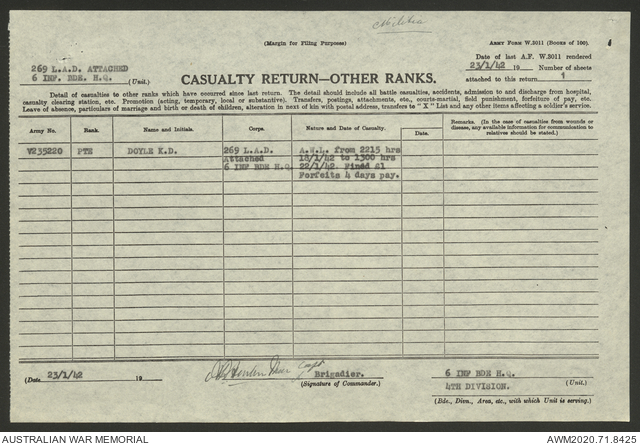 (Margin for Filing Purposes)
ARMY FORM W.3011 (BOOKS OF 100).
269 L.A.D. ATTACHED
6 INF. BDE. H.Q. (Unit.)
CASUALTY RETURN—OTHER RANKS.
Date of last A.F. W.3011 rendered
23/1/42 19 Number of sheets
attached to this return 1
Detail of casualties to other ranks which have occurred since last return. The detail should include all battle casualties, accidents, admission to and discharge from hospital,
casualty clearing station, etc. Promotion (acting, temporary, local or substantive). Transfers, postings, attachments, etc., courts-martial, field punishment, forfeiture of pay, etc.
Leave of absence, particulars of marriage and birth or death of children, alteration in next of kin with postal address, transfers to "X" List and any other items affecting a soldier's service.
Army No. Rank. Name and Initials. Corps. Nature and Date of Casualty. Date. Remarks. (In the case of casualties from wounds or
disease, any available information for communication to
relatives should be stated.)
V235220 PTE DOYLE K.D. 269 L.A.D. A.W.L. from 2215 hrs
Attached 18/1/42 to 1300 hrs
6 INF BDE H.Q. 22/1/42. Fined £1
Forfeits 4 days pay.
(Date 23/1/42 19 Capt Brigadier.
(Signature of Commander.)
6 INF BDE H.Q. (Unit.)
4TH DIVISION.
(Bde., Divn., Area, etc., with which unit is serving.)
AUSTRALIAN WAR MEMORIAL AWM2020.71.8425